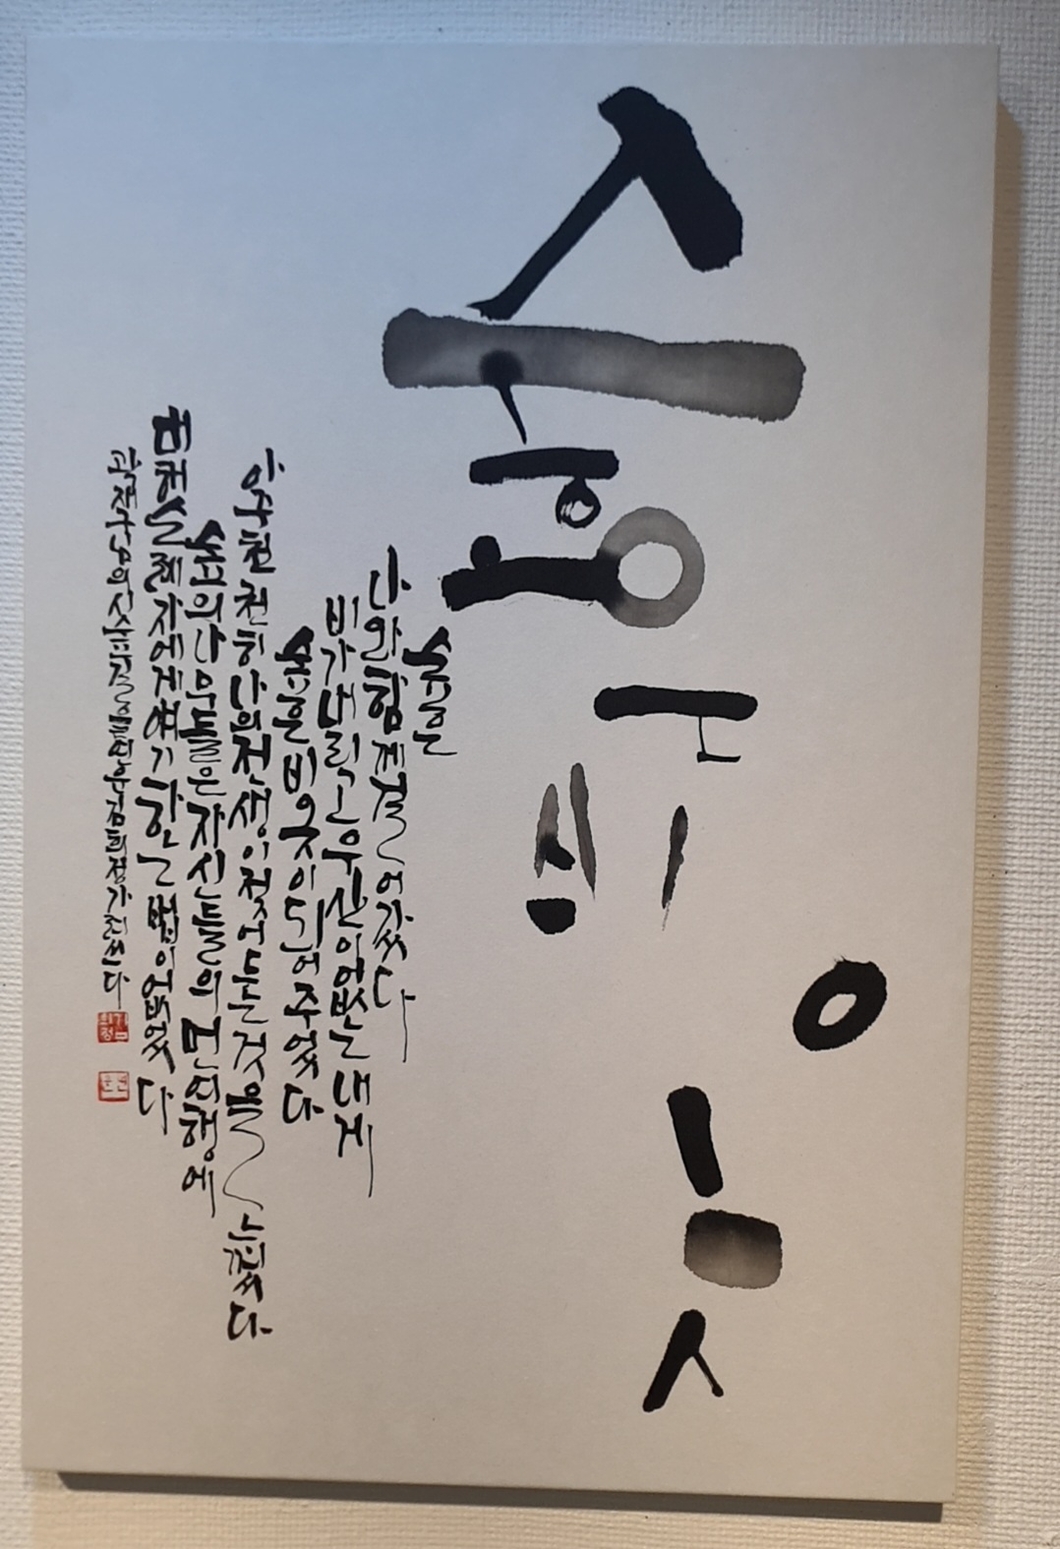 숲은 비옷
숲은
나와 함께 걸어갔다
비가 내리고 우산이 없는 내게
숲은 비옷이 되어 주었다
아주 천천히 나의 전생이 젖어드는 것을 느꼈다
숲의 나무들은 자신들의 먼 여행에
대해 순례자에게 얘기하는 법이 없었다
곽재구님의 시 김희정